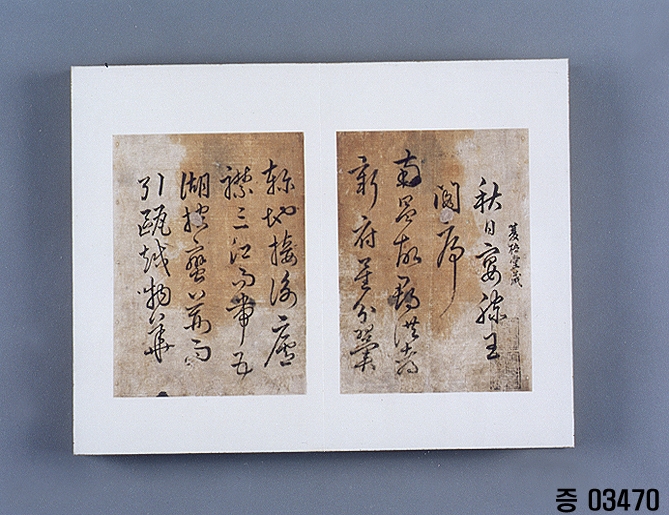 秋日宴滕王
閣序
南昌故郡洪都
新府星分翼
軫地接衡廬
襟三江而帶五
湖控蠻荊而
引甌越物華
堂藏
증 03470